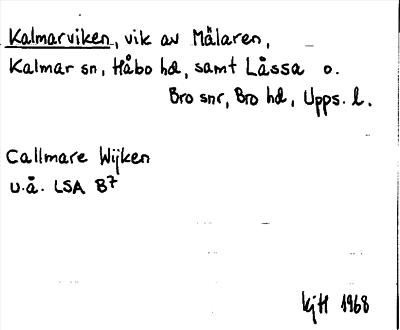 Kalmarviken, vik av Mälaren,
Kalmar sn, Håbo hd, samt Låssa o.
Bro snr, Bro hd, Upps. l.
Callmare Wijken
u.å. LSA B7
KjH 1968